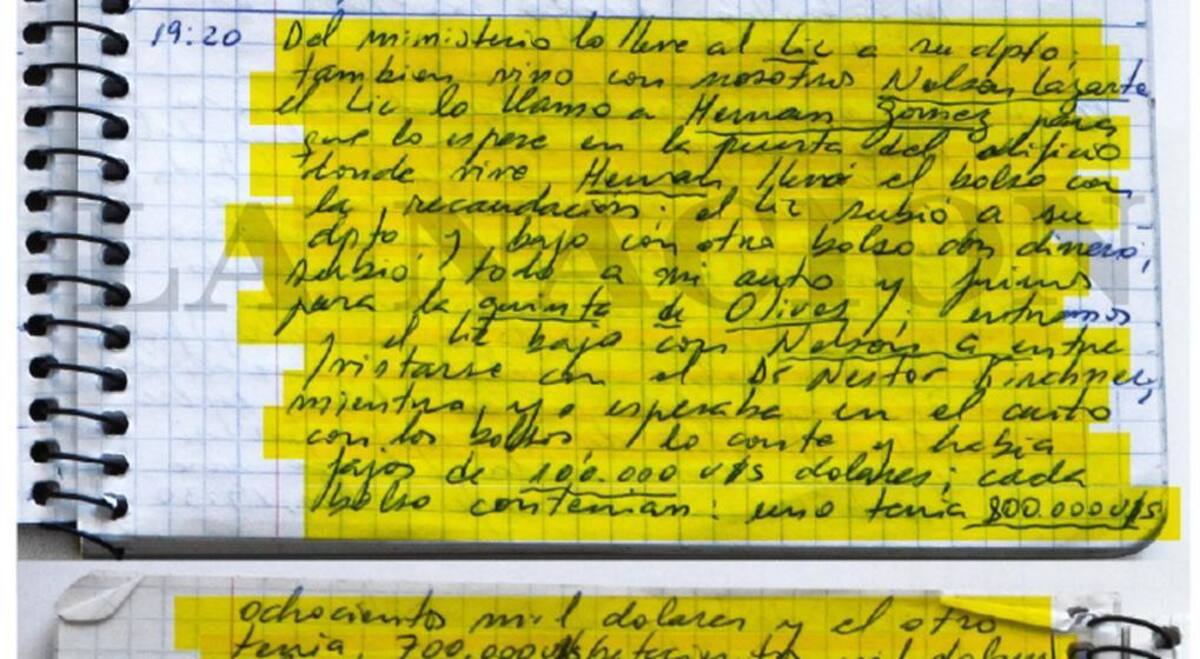 19:20 Del mimisterio lo lleve al Lic a su dpto;
tambien vino con nosotros Nelson Lazarte
el Lic lo llamo a Hernan Gomez para
que lo espere en la puerta del edificio
donde vive Hernan llevó el bolso con
la recaudación: el Lic subió a su
dpto y bajo con otro bolso con dinero,
subio todo a mi auto y fuimos
para la quinta de Olivos; entramos
y el Lic bajo con Nelson a entre
vistarse con el Dr Nestor Kirchner,
mientras yo esperaba en el auto
con los bolsos, lo conte y habia
fajos de 100.000 u$s dolares; cada
bolso contenian: uno tenia 800.000 u$s
ochociento mil dolares y el otro
tenia 700.000 u$s
LA NACION